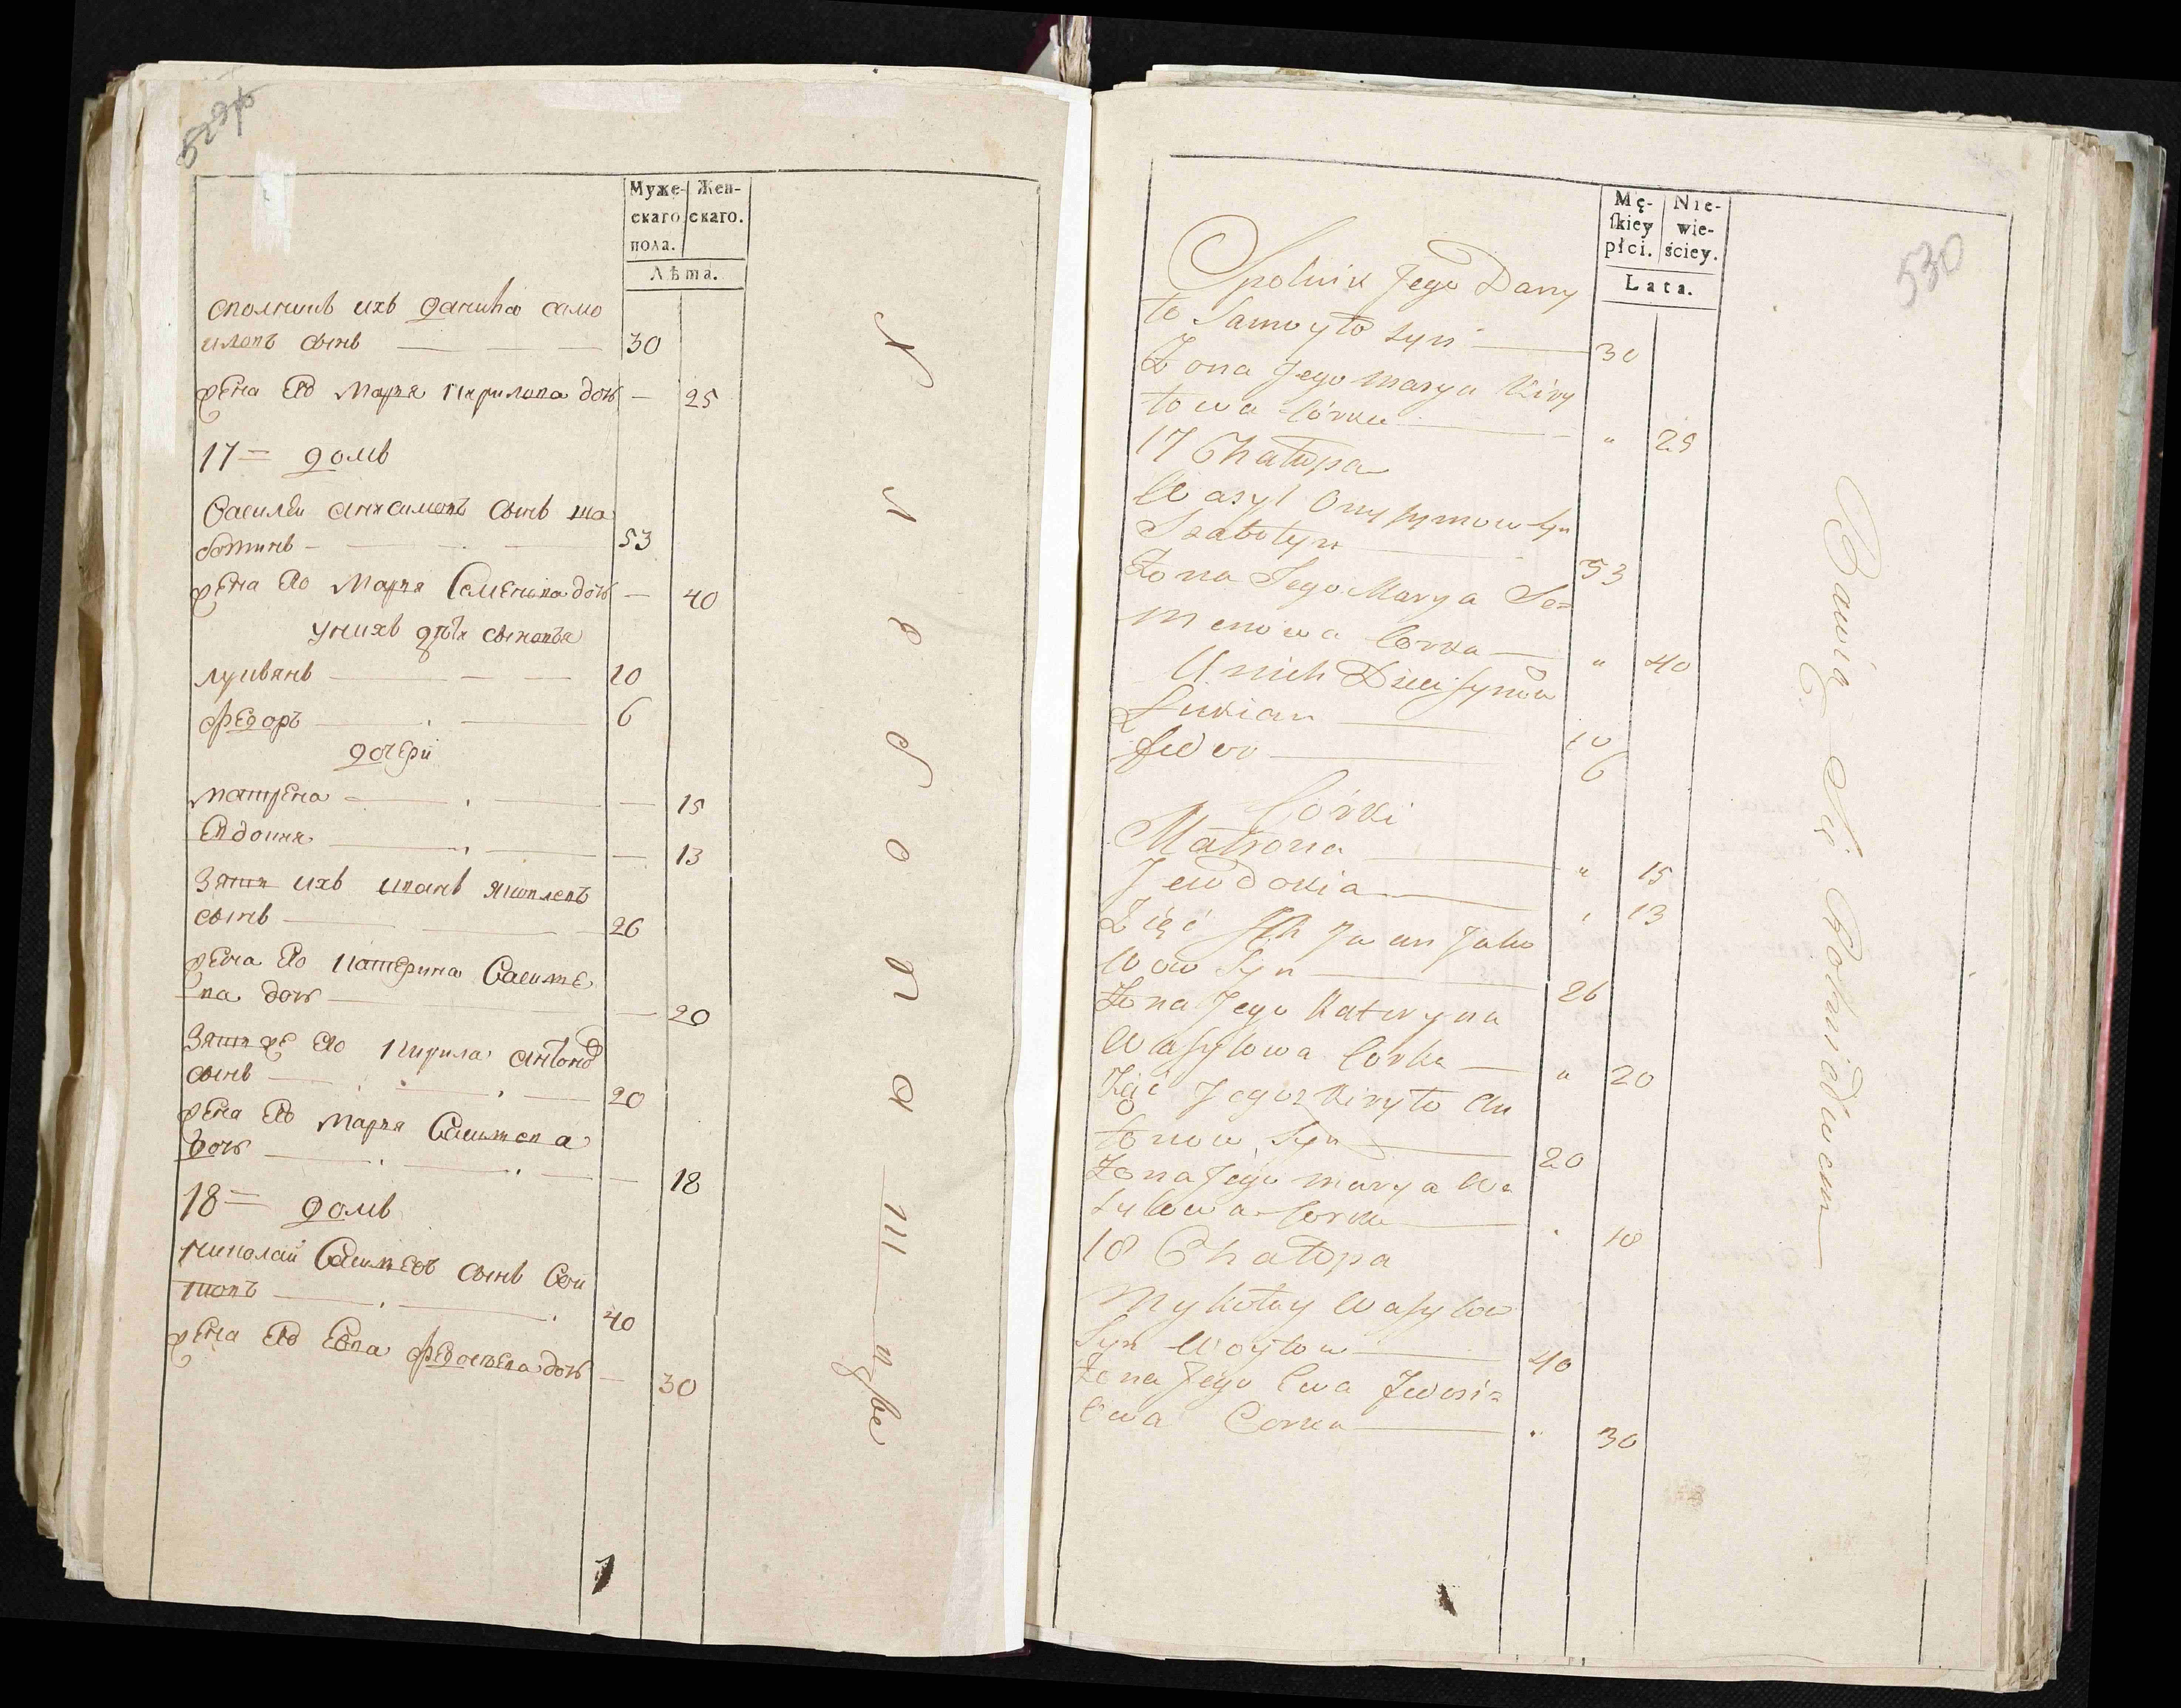 529об
Муже- Жен-
скаго скаго.
пола.
Лѣта.
сполникъ ихъ Данило само
иловъ сынъ 30
жена его Марія Кирилова дочь — 25
17= домъ
Василей Анисимовъ сынъ ша
ботинъ 53
жена его Марія Семенова дочь — 40
у нихъ дѣти сыновья
лукьянъ 10
федоръ 6
дочери
матрена — 15
Евдокия — 13
Зять ихъ иванъ яковлевъ
сынъ 26
жена его катерина Василье
ва дочь — 20
Зять же его кирила антоно
сынъ 20
жена его марія Васильева
дочь — 18
18= домъ
николай Васильевъ сынъ Вои
товъ 40
жена его Евва федосеева дочь — 30
530
Mę- Nie-
skiey wie-
płci. ściey.
Lata.
Spolnik Jego Dany
ło Samoyło syn 30
Żona Jego Marya Kiry
łowa Córka " 25
17 Chałupa
Wasyl Onysymow syn
Szabotyn 53
Żona Jego Marya Se=
menowa Corka " 40
U nich Dzieci synow
Łukian 10
fedor 6
Córki
Matrona " 15
Jewdokia " 13
Zięć Ich Iwan Jako
wow Syn 26
Żona Jego Kateryna
Wasylowa Corka " 20
Zięć Jegoż Kiryło An
tonow Syn 20
Żona Jego Marya Wa
sylowa Corka " 18
18 Chałupa
Mykołay Wasylow
Syn Woytow 40
Żona Jego Ewa Fedosi=
ewa Corka " 30
Bawią Się Rolnictwem